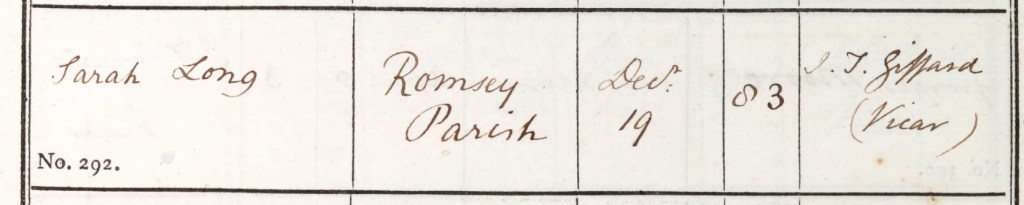 Sarah Long
Romsey
Parish
Decr.
19
83
J. T. Giffard
(Vicar)
No. 292.